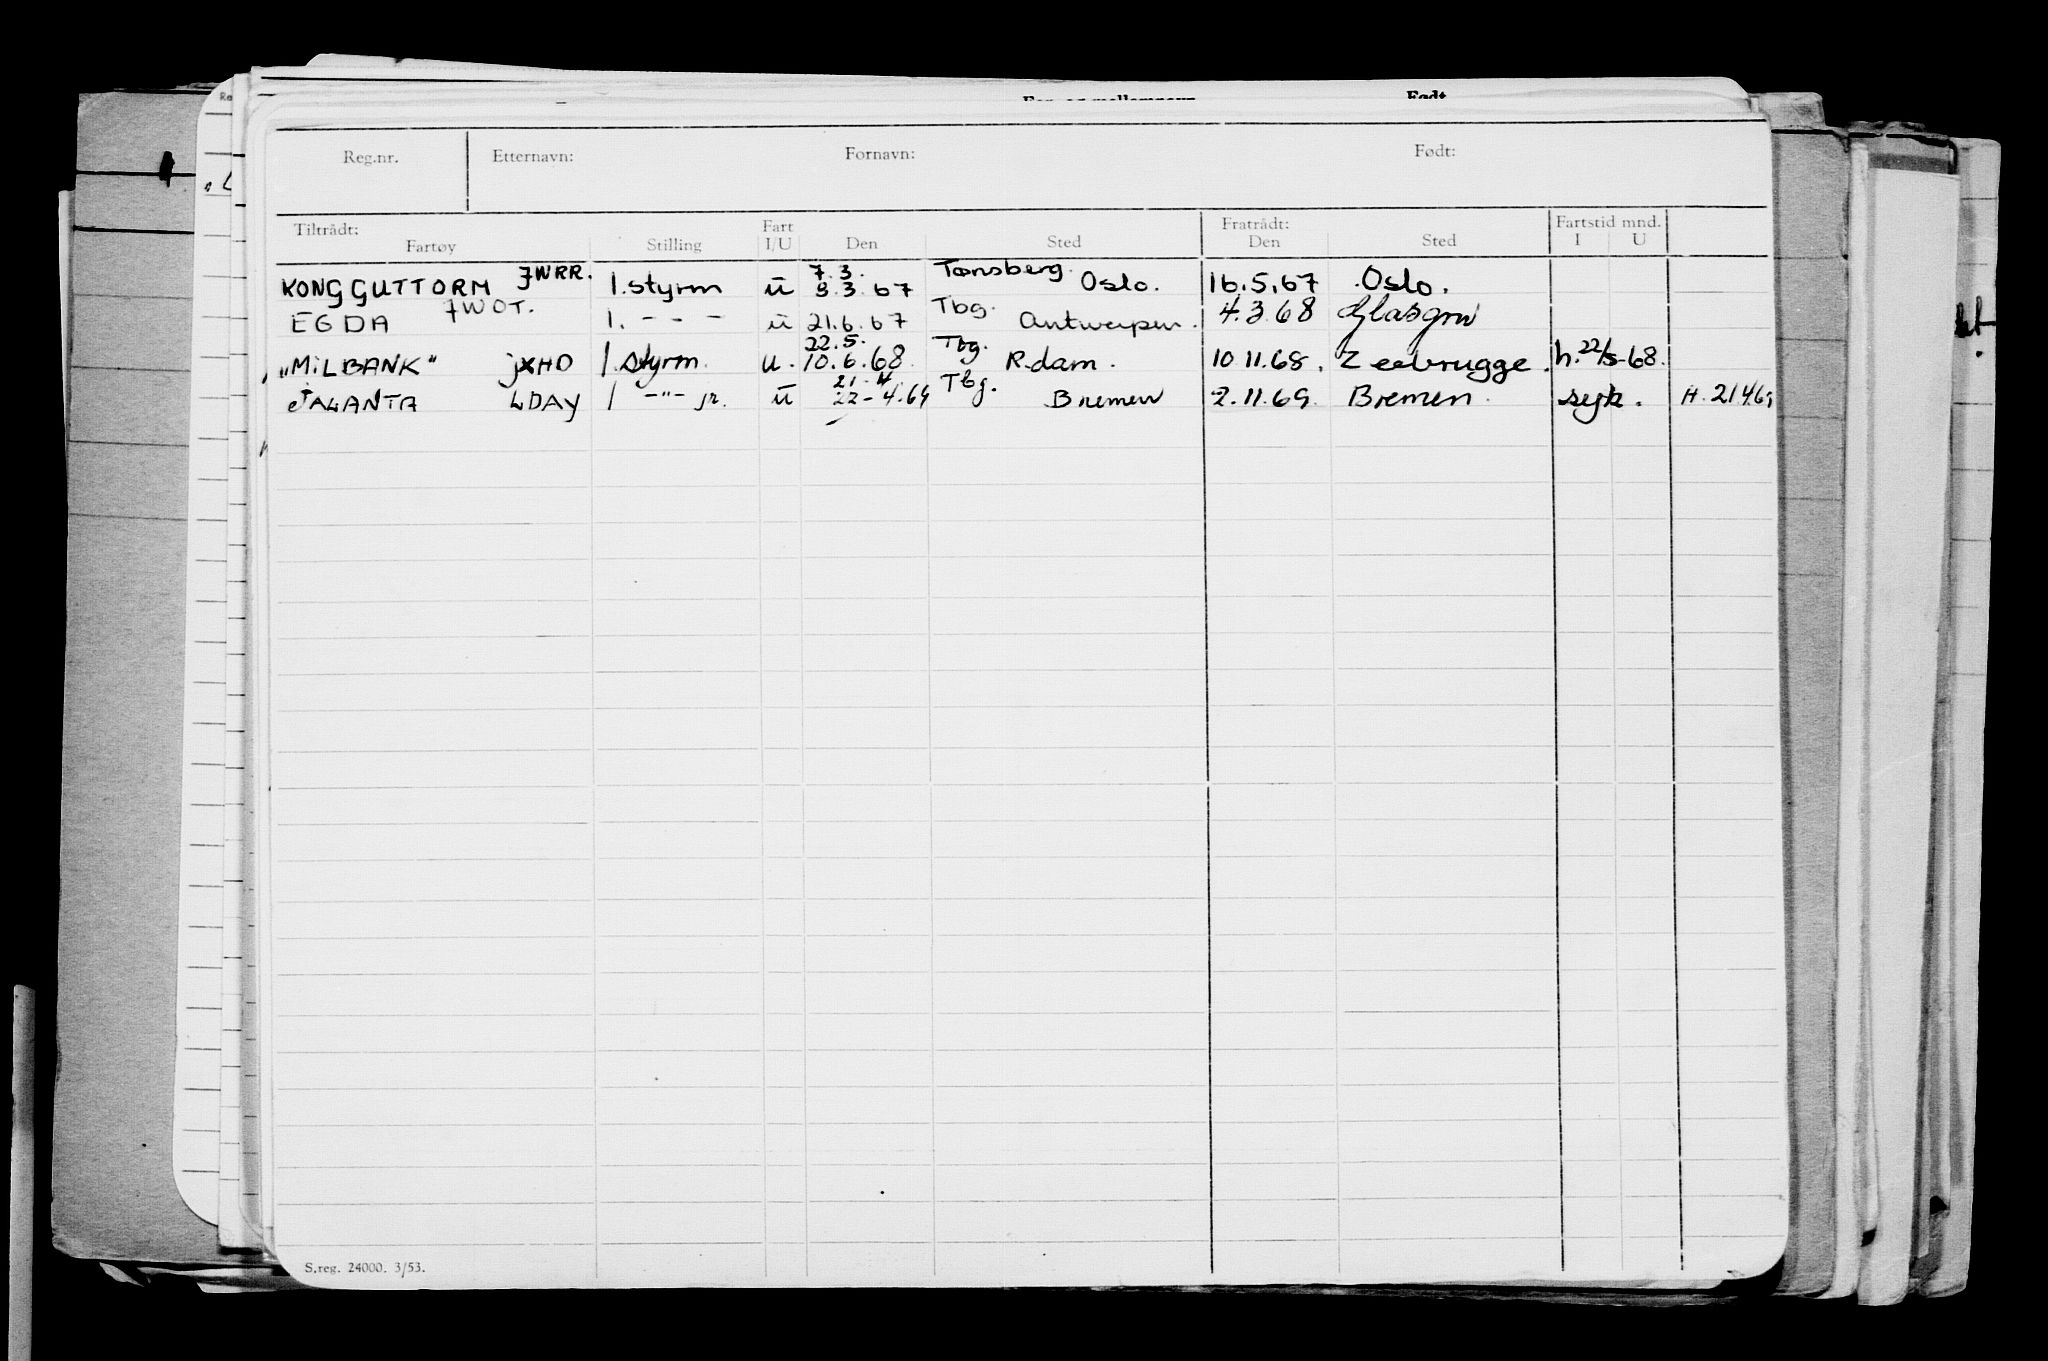 Reg.nr. Etternavn: Fornavn: Født:
Tiltrådt: Fart Fratrådt: Fartstid mnd.
Fartøy Stilling I/U Den Sted Den Sted I U
JWRR. 7.3. Tønsberg.
KONG GUTTORM 1.styrm u 8.3.67 Oslo. 16.5.67 Oslo.
JWOT. Tbg.
EGDA 1. - - - u 21.6.67 Antwerpen. 4.3.68 Glasgow
22.5. Tbg.
„MILBANK" JXHD 1.styrm. u. 10.6.68 R.dam. 10.11.68. Zeebrugge. h. 22/5-68.
21-4 Tbg.
JALANTA LDAY 1 -"- jr. u 22-4.69 Bremen 2.11.69. Bremen. sejk. H. 21.4.69
S.reg. 24000. 3/53.